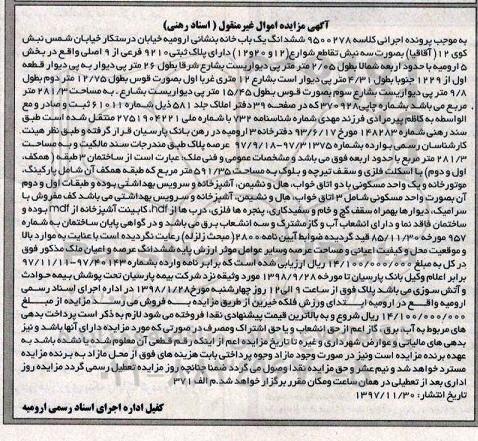 آگهی مزایده اموال غیرمنقول ( اسناد رهنی )
به موجب پرونده اجرائی کلاسه ۹۵۰۰۲۷۸ ششدانگ یک باب خانه بنشانی ارومیه خیابان درستکار خیابان شمس نبش
کوی ۱۲ (آقاقیا) بصورت سه نبش تقاطع شوارع (۱۲ و ۲۰ و ۱۲) دارای پلاک ثبتی ۹۲۱۰ فرعی از ۹ اصلی واقع در بخش
۵ ارومیه با حدود اربعه شمالا بطول ۲/۰۵ متر متر پی دیواریست بشارع شرقا بطول ۲۶ متر پی دیوار به پی دیوار قطعه
اول از ۱۲۲۹ جنوبا بطول ۴/۳۱ متر پی دیوار است بشارع ۱۲ متری غربا اول بصورت قوس بطول ۱۲/۷۵ متر دوم بطول
۹/۸ متر پی دیواریست بشارع سوم بصورت قوس بطول ۱۵/۴۵ متر پی دیواریست بشارع . به مساحت ۲۸۱/۳ متر
مربع می باشد با شماره چاپی ۳۷۰۹۲۸ که در صفحه ۳۹ دفتر املاک جلد ۵۸۱ ذیل شماره ۶۱۰۱۱ ثبت و صادر و مع
الواسطه به کاظم پیرمرادی فرزند مهدی شماره شناسنامه ۷۳۲ با شماره ملی ۲۷۵۱۹۰۴۲۲۱ منتقل شده است طبق
سند رهنی شماره ۱۴۸۲۸۳ مورخ ۹۳/۶/۱۷ دفترخانه ۳ ارومیه در رهن بانک پارسیان قرار گرفته و طبق نظر هیئت
کارشناسان رسمی بوارده بشماره ۹۷/۳۱۳۷۵-۹۷/۹/۱۸ عرصه پلاک طبق مندرجات سند مالکیت و به مساحت
۲۸۱/۳ متر مربع با حدود اربعه فوق می باشد و مشخصات عمومی و فنی ملک: عبارت است از ساختمان ۳ طبقه ( همکف،
اول و دوم) با اسکلت فلزی و سقف تیرچه و بلوک به مساحت ۵۹۱/۳۵ متر مربع که طبقه همکف آن شامل پارکینگ،
موتورخانه و یک واحد مسکونی با دو اتاق خواب، هال و نشیمن، آشپزخانه و سرویس بهداشتی بوده و طبقات اول و دوم
آن بصورت واحد مسکونی شامل ۳ اتاق خواب، هال و نشیمن، آشپزخانه و سرویس بهداشتی می باشد کف مفروش با
سرامیک، دیوارها بهمراه سقف گچ و خام و سفیدکاری، پنجره ها فلزی، درب ها از hdf، کابینت آشپزخانه از mdf بوده و
ساختمان فاقد نما و دارای انشعاب آب و گاز مشترک و سه انشعاب برق می باشد و در گواهی پایان ساختمان به شماره
۹۵۷ مورخه ۸۵/۱۱/۳۰ قید گردیده ضوابط آیین نامه ۲۸۰۰ (مبحث زلزله) رعایت نگردیده است با عنایت به موارد بالا
و موقعیت محل و کیفیت اعیانی و مساحت عرصه و سایر عوامل موثر ارزش پایه ششدانگ عرصه و اعیان ملک مذکور فوق
در کل به مبلغ ۱۴/۱۰۰/۰۰۰/۰۰۰ ریال ارزیابی شده است که برابر نامه وارده بشماره ۹۷/۴۰۱۲۳-۹۷/۱۱/۱۱
برابر اعلام وکیل بانک پارسیان تا مورخه ۱۳۹۸/۹/۲۸ مورد وثیقه نزد شرکت بیمه پارسیان تحت پوشش بیمه حوادث
و آتش سوزی می باشد پلاک فوق از ساعت ۹ الی ۱۲ روز چهارشنبه مورخ ۱۳۹۸/۱/۲۸ در اداره اجرای اسناد رسمی
ارومیه واقع در ارومیه ابتدای ورزش فلکه خیبر از طریق مزایده به فروش می رسد مزایده از مبلغ
۱۴/۱۰۰/۰۰۰/۰۰۰ ریال شروع و به بالاترین قیمت پیشنهادی نقدا فروخته می شود لازم به ذکر است پرداخت بدهی
های مربوط به آب، برق، گاز اعم از حق انشعاب و یا حق اشتراک و مصرف در صورتی که مورد مزایده دارای آنها باشد و نیز
بدهی های مالیاتی و عوارض شهرداری و غیره تا تاریخ مزایده اعم از اینکه رقم قطعی آن معلوم شده یا نشده باشد به
عهده برنده مزایده است و نیز در صورت وجود مازاد وجوه پرداختی بابت هزینه های فوق از محل مازاد به برنده مزایده
مسترد خواهد شد و نیم عشر و حق مزایده نقدا وصول می گردد ضمنا چنانچه روز مزایده تعطیل رسمی گردد مزایده روز
اداری بعد از تعطیلی در همان ساعت و مکان مقرر برگزار خواهد شد.م الف ۳۷۱
تاریخ انتشار: ۱۳۹۷/۱۱/۳۰
کفیل اداره اجرای اسناد رسمی ارومیه